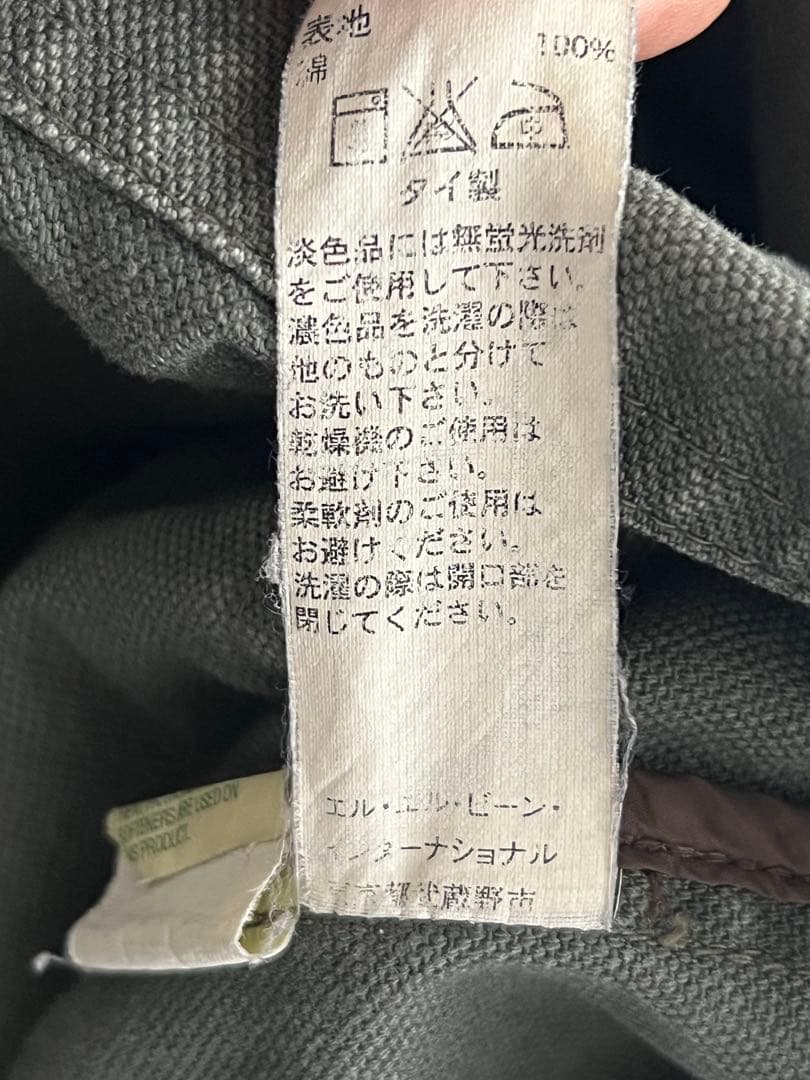 表地
綿 100%
中
タイ製
淡色品には無蛍光洗剤
をご使用して下さい。
濃色品を洗濯の際は
他のものと分けて
お洗い下さい。
乾燥機のご使用は
お避け下さい。
柔軟剤のご使用は
お避けください。
洗濯の際は開口部を
閉じてください。
エル・エル・ビーン・
インターナショナル
東京都武蔵野市
SOFTENERS BE USED ON
PRODUCT.